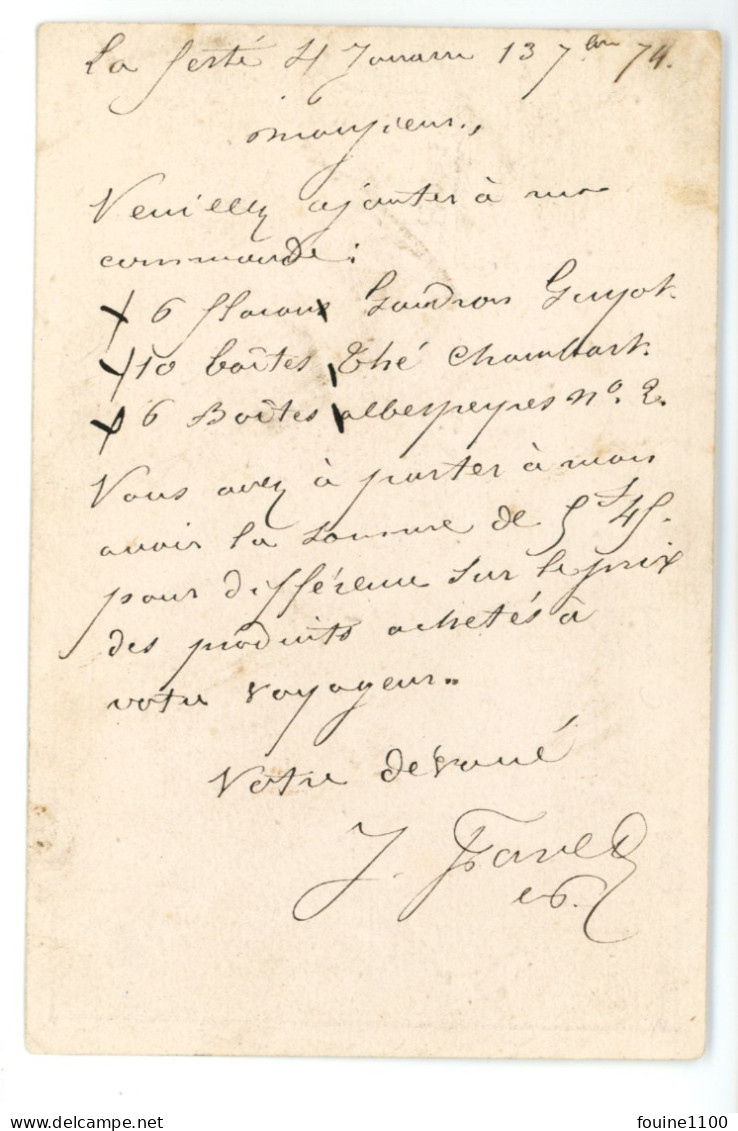 La ferté s/ Jouarre 13 7bre 74.
Monsieur,
Veuillez ajouter à ma
commande :
6 flacons Goudron Guyot.
10 boîtes Thé Chambart.
6 Boîtes albespeyres no. 2.
Vous avez à porter à mon
avoir la somme de 5f 45.
pour différence sur le prix
des produits achetés à
votre voyageur..
Votre dévoué
J.
fouine1100